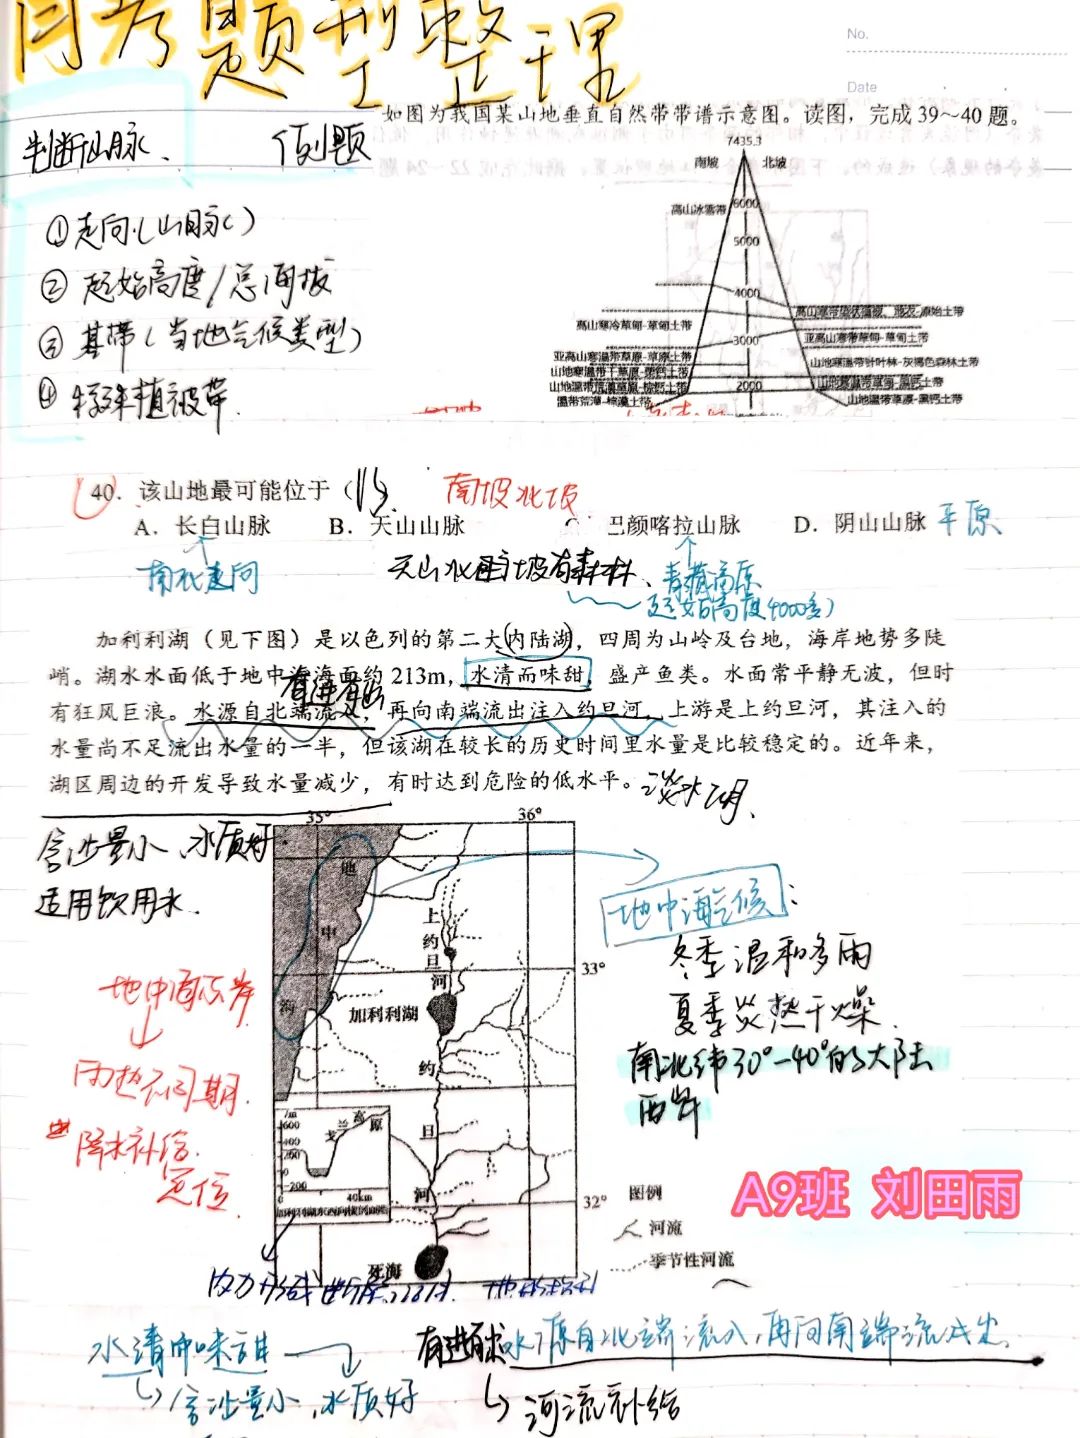 月考题型整理
No.
Date
判断山脉、
例题
如图为我国某山地垂直自然带带谱示意图。读图，完成39～40题。
7435.3
南坡 北坡
高山冰雪带
6000
5000
4000
3000
2000
高山寒冷草甸-草甸土带
亚高山寒温带草原-草原土带
山地寒温带干草原-栗钙土带
山地温带荒漠草原-棕钙土带
温带荒漠-棕漠土带
亚高山寒带草甸-草甸土带
山地寒温带针叶林-灰褐色森林土带
山地寒温带草甸-黑钙土带
山地温带草原-黑钙土带
①走向(山脉)
②起始高度/总海拔
③基带(当地气候类型)
④特殊植被带.
40．该山地最可能位于（B）
南坡北坡
A．长白山脉 B．天山山脉 C 巴颜喀拉山脉 D．阴山山脉 平原
南北走向
天山北坡有森林、
青藏高原
起始高度4000多)
加利利湖（见下图）是以色列的第二大内陆湖，四周为山岭及台地，海岸地势多陡
峭。湖水水面低于地中海海面约213m，水清而味甜，盛产鱼类。水面常平静无波，但时
有进有出
有狂风巨浪。水源自北端流入，再向南端流出注入约旦河，上游是上约旦河，其注入的
水量尚不足流出水量的一半，但该湖在较长的历史时间里水量是比较稳定的。近年来，
湖区周边的开发导致水量减少，有时达到危险的低水平。
淡水湖、
含沙量小、水质好
适用饮用水.
35° 36°
地中海
上约旦河
33°
加利利湖
约旦河
32°
死海
/m
600
400
200
0
-200
0 40km
戈兰高原
图例
河流
季节性河流
地中海气候：
冬季温和多雨
夏季炎热干燥.
南北纬30°-40°的大陆
西岸
地中海东岸
雨热不同期.
降水补给.
定位
A9班 刘田雨
水清而味甜
有进有出
水源自北端流入,再向南端流出
含沙量小、水质好
河流补给